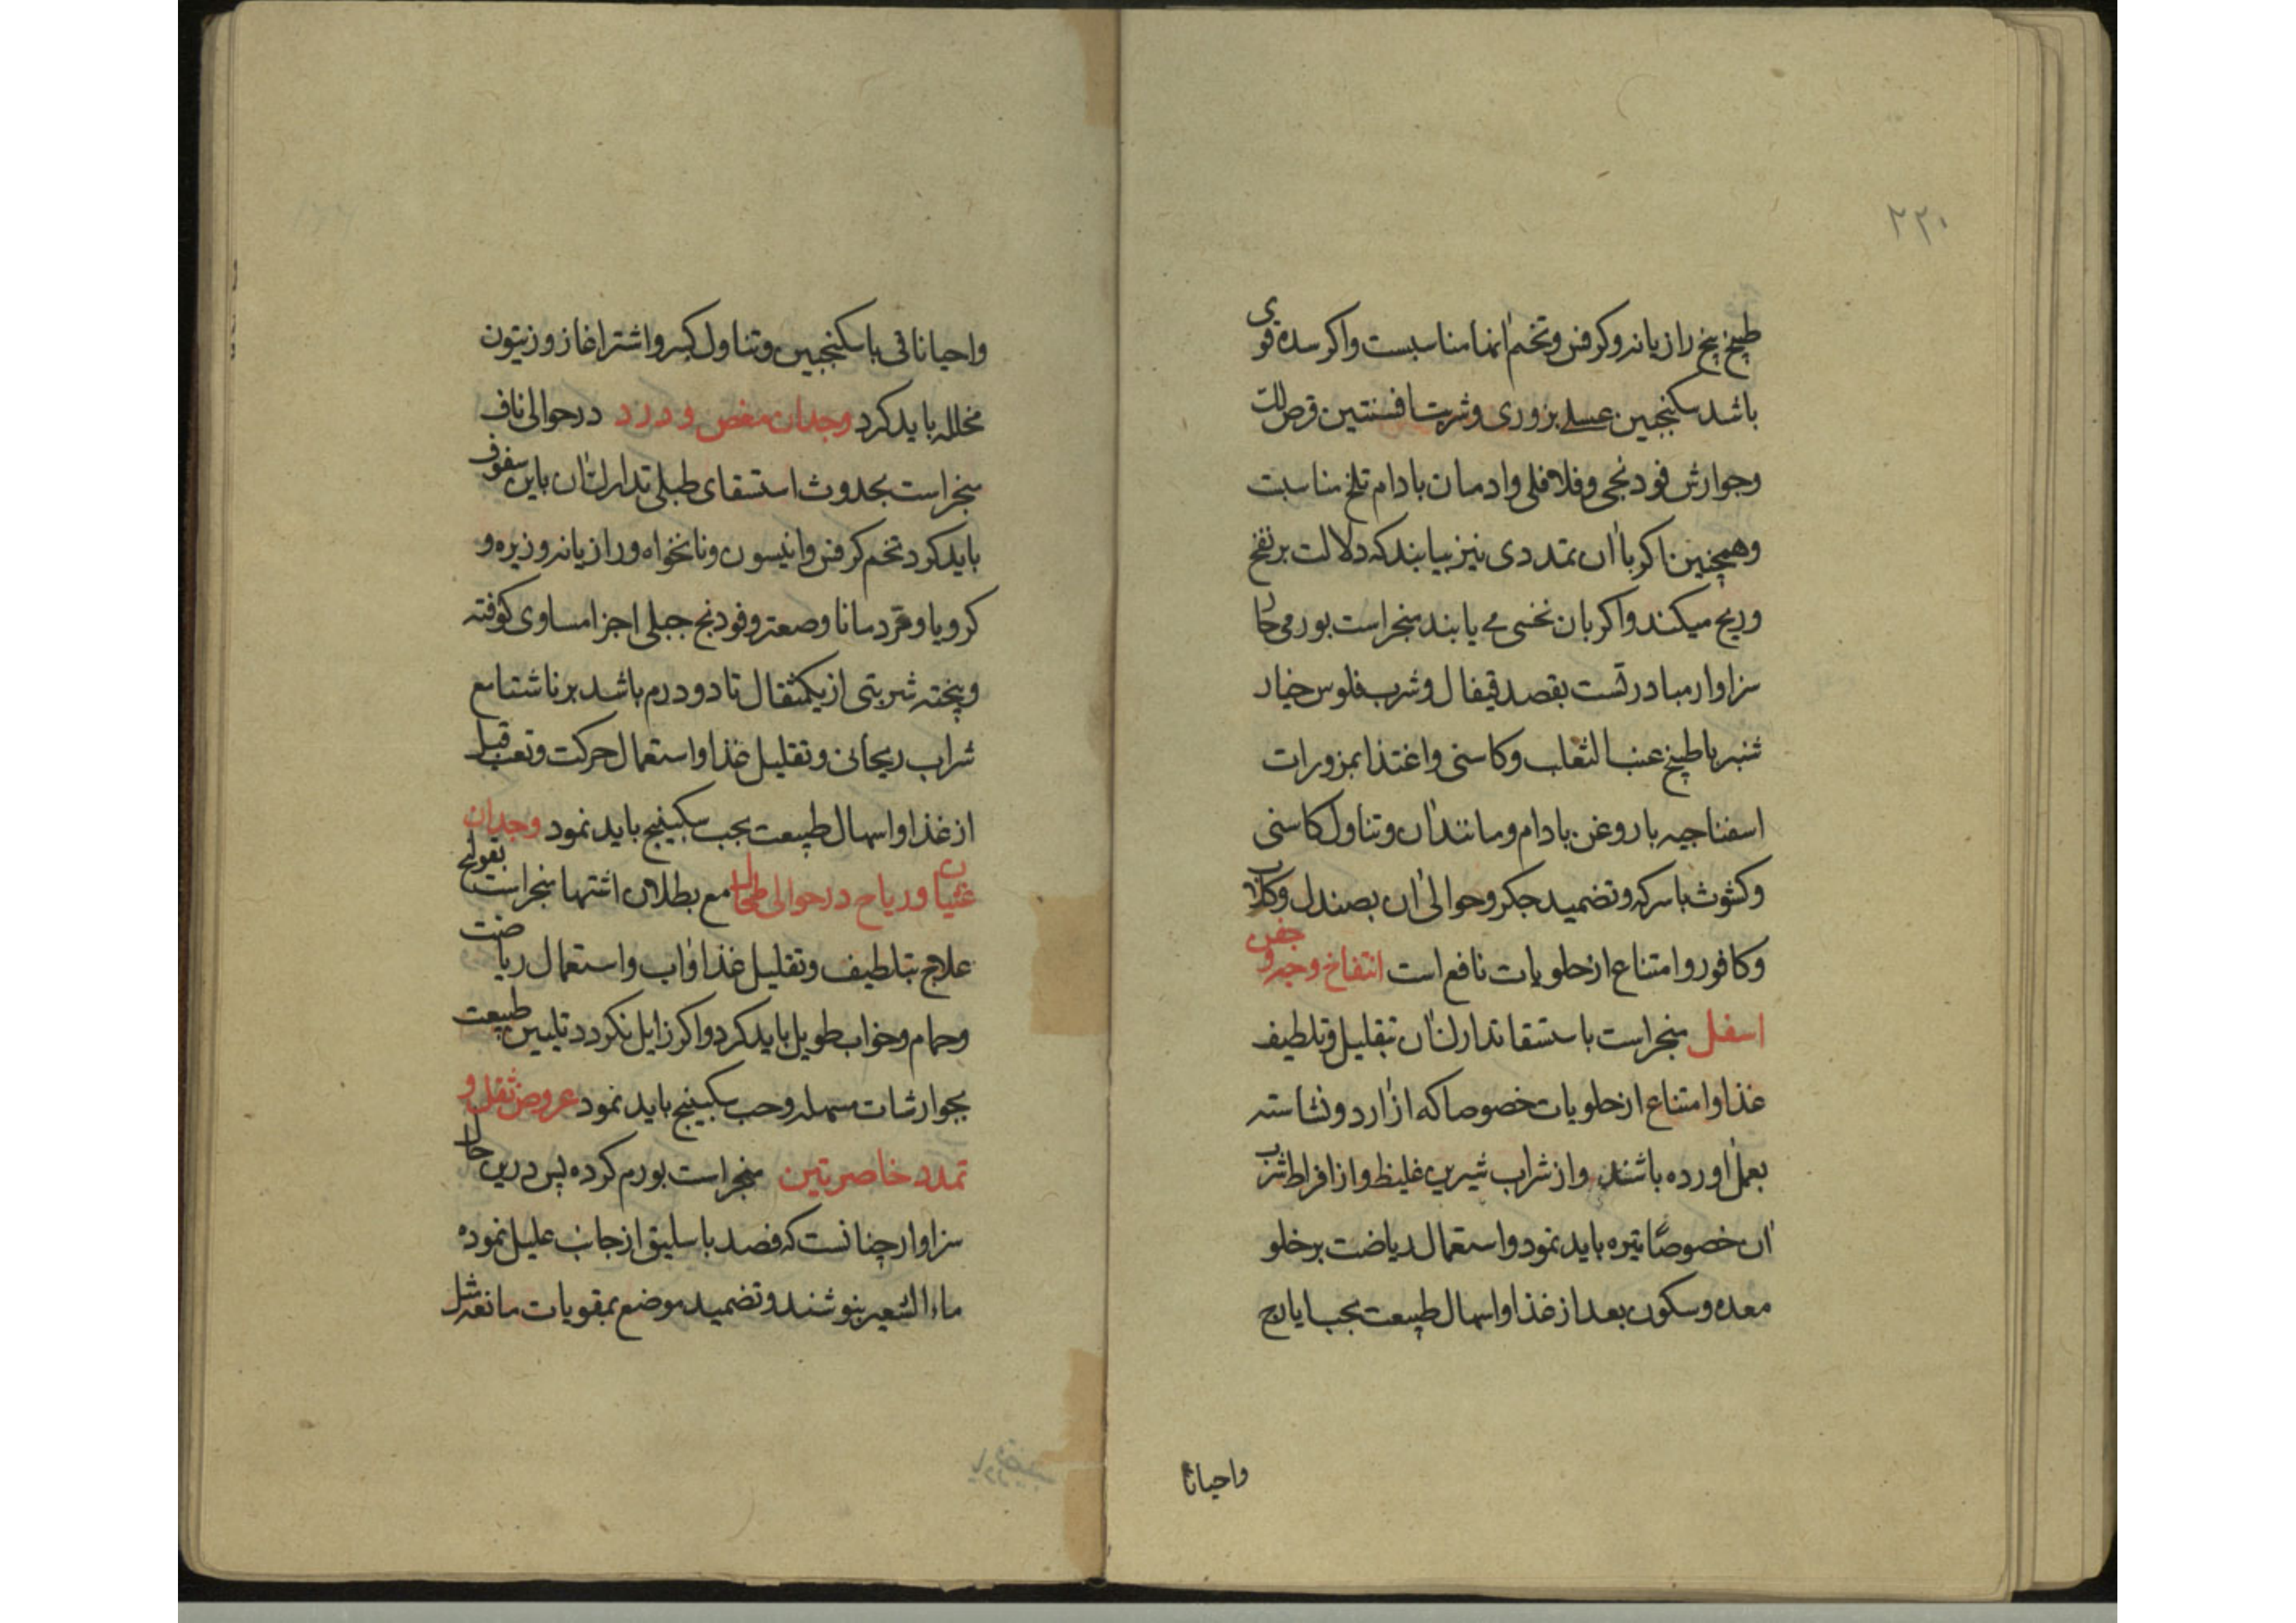 ۲۲۰
طبیخ بیخ رازیانه و کرفس و تخم آنها مناسبست و اکر سده قوی
باشد سکنجبین عسلی بزوری و شربت افسنتین و قرص لک
و جوارش فودنجی و فلافلی و ادمان بادام تلخ مناسبت
و همچنین اکر با آن تمددی نیز بیابند که دلالت بر نفخ
و ریح میکند و اکر بان نخسی می یابند منجر است بورمی حار
سزاوار مبادرتست بفصد قیفال و شرب فلوس خیار
شنبر با طبیخ عنب الثعلب و کاسنی و اغتذا بمزورات
اسفناجیه با روغن بادام و مانند آن و تناول کاسنی
و کشوث با سرکه و تضمید جکر و حوالی آن بصندل و کلاب
و کافور و امتناع از حلویات نافع است انتفاخ وجه و جفن
اسفل منجر است باستسقا تدارک آن بتقلیل و تلطیف
غذا و امتناع از حلویات خصوصا که از آرد و نشاسته
بعمل آورده باشند و از شراب شیرین غلیظ و از افراط شرب
آن خصوصًا تیره باید نمود و استعمال ریاضت بر خلو
معده و سکون بعد از غذا و اسهال طبیعت بحب ایارج
واحیانا
واحیانا قی با سکنجبین و تناول کبر و اشترغاز و زیتون
مخلله باید کرد وجدان مغص و درد در حوالی ناف
منجر است بحدوث استسقای طبلی تدارک آن باین سفوف
باید کرد تخم کرفس و انیسون و نانخواه و رازیانه و زیره و
کرویا و قردمانا و صعتر و فودنج جبلی اجزا مساوی کوفته
و پخته شربتی از یکمثقال تا دو درم باشد بر ناشتا مع
شراب ریحانی و تقلیل غذا و استعمال حرکت و تعب قبل
از غذا و اسهال طبیعت بحب سکبینج باید نمود وجدان
غثیان و ریاح در حوالی طحال مع بطلان اشتها منجر است بقولنج
علاج بتلطیف و تقلیل غذا و آب و استعمال ریاضت
و حمام و خواب طویل باید کرد و اکر زایل نکردد تلیین طبیعت
بجوارشات مسهله و حب سکبینج باید نمود عروض ثقل و
تمدد خاصرتین منجر است بورم کرده پس درین حال
سزاوار چنانست که فصد باسلیق از جانب علیل نموده
ماء الشعیر بنوشند و تضمید موضع بمقویات مانعه مثل